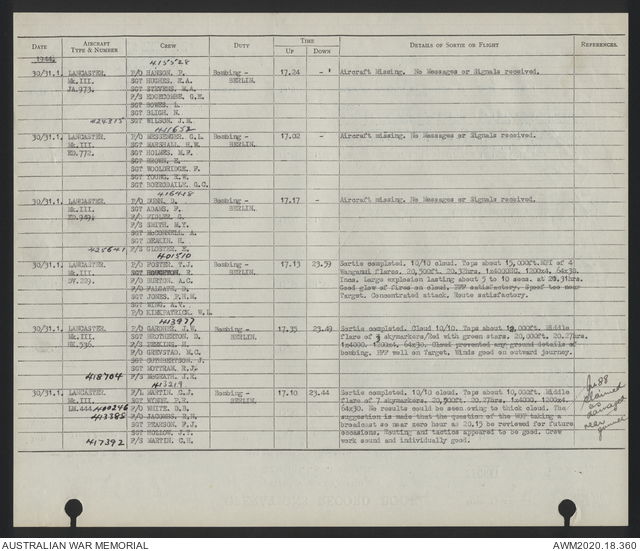 DATE AIRCRAFT TYPE & NUMBER CREW DUTY TIME UP DOWN DETAILS OF SORTIE OR FLIGHT REFERENCES.
1944. 415328
30/31.1. LANCASTER. P/O HANSON, P. Bombing - 17.24 - Aircraft Missing. No Messages or Signals received.
Mk.III. SGT HUGHES, E.A. BERLIN.
JA.973. SGT STEVENS, M.A.
F/S EDGECOMBE, G.E.
SGT BOWES, L.
SGT BLIGH, N.
424815 SGT WILSON, J.H.
411652
30/31.1. LANCASTER. P/O MESSENGER, G.L. Bombing - 17.02 - Aircraft missing. No Messages or Signals received.
Mk.III. SGT MARSHALL, H.E. BERLIN.
ED.772. SGT HOLMES, M.F.
SGT BROWN, E.
SGT WOOLDRIDGE, F.
SGT YOUNG, E.W.
SGT BORROWDAILE, G.C.
416418
30/31.1. LANCASTER. P/O DUNN, D. Bombing - 17.17 - Aircraft missing. No Messages or Signals received.
Mk.III. SGT ADAMS, F. BERLIN.
P/O
F/S SMITH, M.Y.
SGT McCONNELL, A.
SGT DEAKIN, H.
425641 F/S GLOSTER, E.
401510
30/31.1. LANCASTER. P/O FOSTER, T.J. Bombing - 17.13 23.59 Sortie completed. 10/10 cloud. Tops about 15,000ft. MPI of 4
Mk.III. SGT R. BERLIN. Wanganui flares. 20,500ft. 20.30hrs. 1x4000HC. 1200x4. 64x30.
DV.229. P/O BURTON, A.C. Incs. Large explosion lasting about 5 to 10 secs. at 20.31hrs.
P/O FALGATE, D. Good glow of fires on cloud. PFF satisfactory. Spoof too near
SGT JONES, P.H.N. Target. Concentrated attack. Route satisfactory.
SGT WING, A.Y.
P/O KIRKPATRICK, W.L.
413977
30/31.1. LANCASTER. P/O GARDNER, J.W. Bombing - 17.35 23.49 Sortie completed. Cloud 10/10. Tops about ,000ft. Middle
Mk.III. SGT BROTHERTON, D. BERLIN. flare of skymarkers/Red with green stars. 20,000ft. 20.20hrs.
536. F/S PERKINS, H. 1x4000. 120x4. 64x30. Cloud prevented any ground details of
P/O GREYSTAD, M.C. bombing. PFF well on Target. Winds good on outward journey.
SGT CUTHBERTSON, J.
SGT MOTTRAM, R.J.
418704 F/S McGRATH, J.H.
413219
30/31.1. LANCASTER. F/L MARTIN, C.J. Bombing - 17.10 23.44 Sortie completed. 10/10 cloud. Tops about 10,000ft. Middle
Mk.III. SGT WYNNE, F.R. BERLIN. flare of 7 skymarkers. 20,500ft. 20.27hrs. 1x4000. 1200x4.
LM.444. 410246 P/O WHITE, D.B. 64x30. No results could be seen owing to thick cloud. The
413385 P/O JACOBS, R.H. suggestion is made that the question of the WOP taking a
SGT PEARSON, F.J. broadcast so near zero hour as 20.15 be reviewed for future
SGT HOLLOW, J.T. occasions. Routing and tactics appeared to be good. Crew
417392 F/S MARTIN, C.H. work sound and individually good.
Ju88
claimed
as
damaged
rear
gunner
AUSTRALIAN WAR MEMORIAL AWM2020.18.360